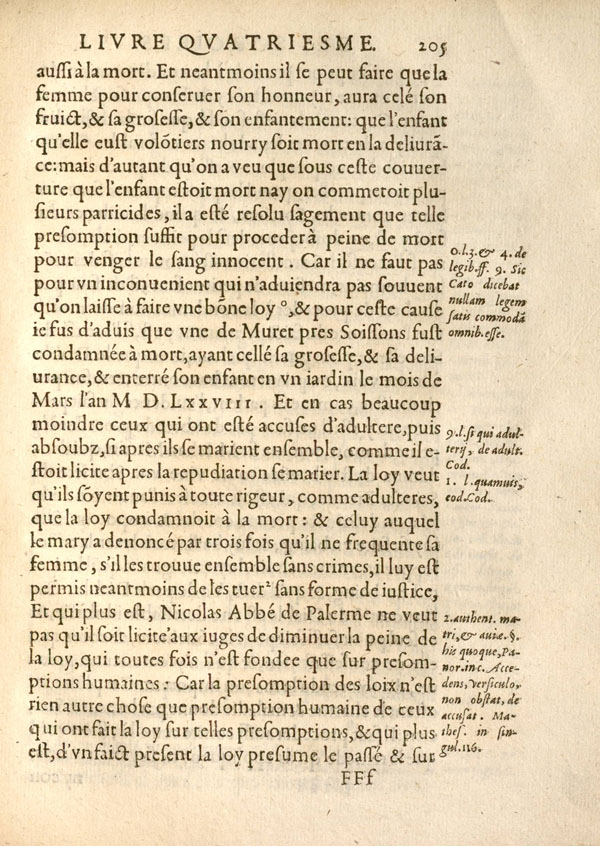 LIVRE QVATRIESME. 205
aussi à la mort. Et neantmoins il se peut faire que la
femme pour conseruer son honneur, aura celé son
fruict, & sa grosesse, & son enfantement: que l'enfant
qu'elle eust volõtiers nourry soit mort en la deliurã-
ce: mais d'autant qu'on a veu que sous ceste couuer-
ture que l'enfant estoit mort nay on commetoit plu-
sieurs parricides, il a esté resolu sagement que telle
presomption suffit pour proceder à peine de mort
pour venger le sang innocent. Car il ne faut pas
pour vn inconuenient qui n'aduiendra pas souuent
qu'on laisse à faire vne bõne loy °, & pour ceste cause
ie fus d'aduis que vne de Muret pres Soissons fust
condamnée à mort, ayant cellé sa grosesse, & sa deli-
urance, & enterré son enfant en vn iardin le mois de
Mars l'an M D. LXXVIII. Et en cas beaucoup
moindre ceux qui ont esté accuses d'adultere, puis
absoubz, si apres ils se marient ensemble, comme il e-
stoit licite apres la repudiation se marier. La loy veut
qu'ils sõyent punis à toute rigeur, comme adulteres,
que la loy condamnoit à la mort: & celuy auquel
le mary a denoncé par trois fois qu'il ne frequente sa
femme, s'il les trouue ensemble sans crimes, il luy est
permis neantmoins de les tuer² sans forme de iustice,
Et qui plus est, Nicolas Abbé de Palerme ne veut
pas qu'il soit licite aux iuges de diminuer la peine de
la loy, qui toutes fois n'est fondee que sur presom-
ptions humaines: Car la presomption des loix n'est
rien autre chose que presomption humaine de ceux
qui ont fait la loy sur telles presomptions, & qui plus
est, d'vn faict present la loy presume le passé & sur
FFf
o. l. 3. & 4. de
legib. ff. 9. Sic
Cato dicebat
nullam legem
satis commodã
omnib. esse.
9. l. si qui adul-
terij, de adult.
Cod.
1. l. quamuis,
eod. Cod.
2. authent. ma-
tri, & auiæ. §.
hic quoque, Pa-
nor. in c. Acce-
dens, versiculo,
non obstat, de
accusat. Ma-
thes. in sin-
gul. 116.